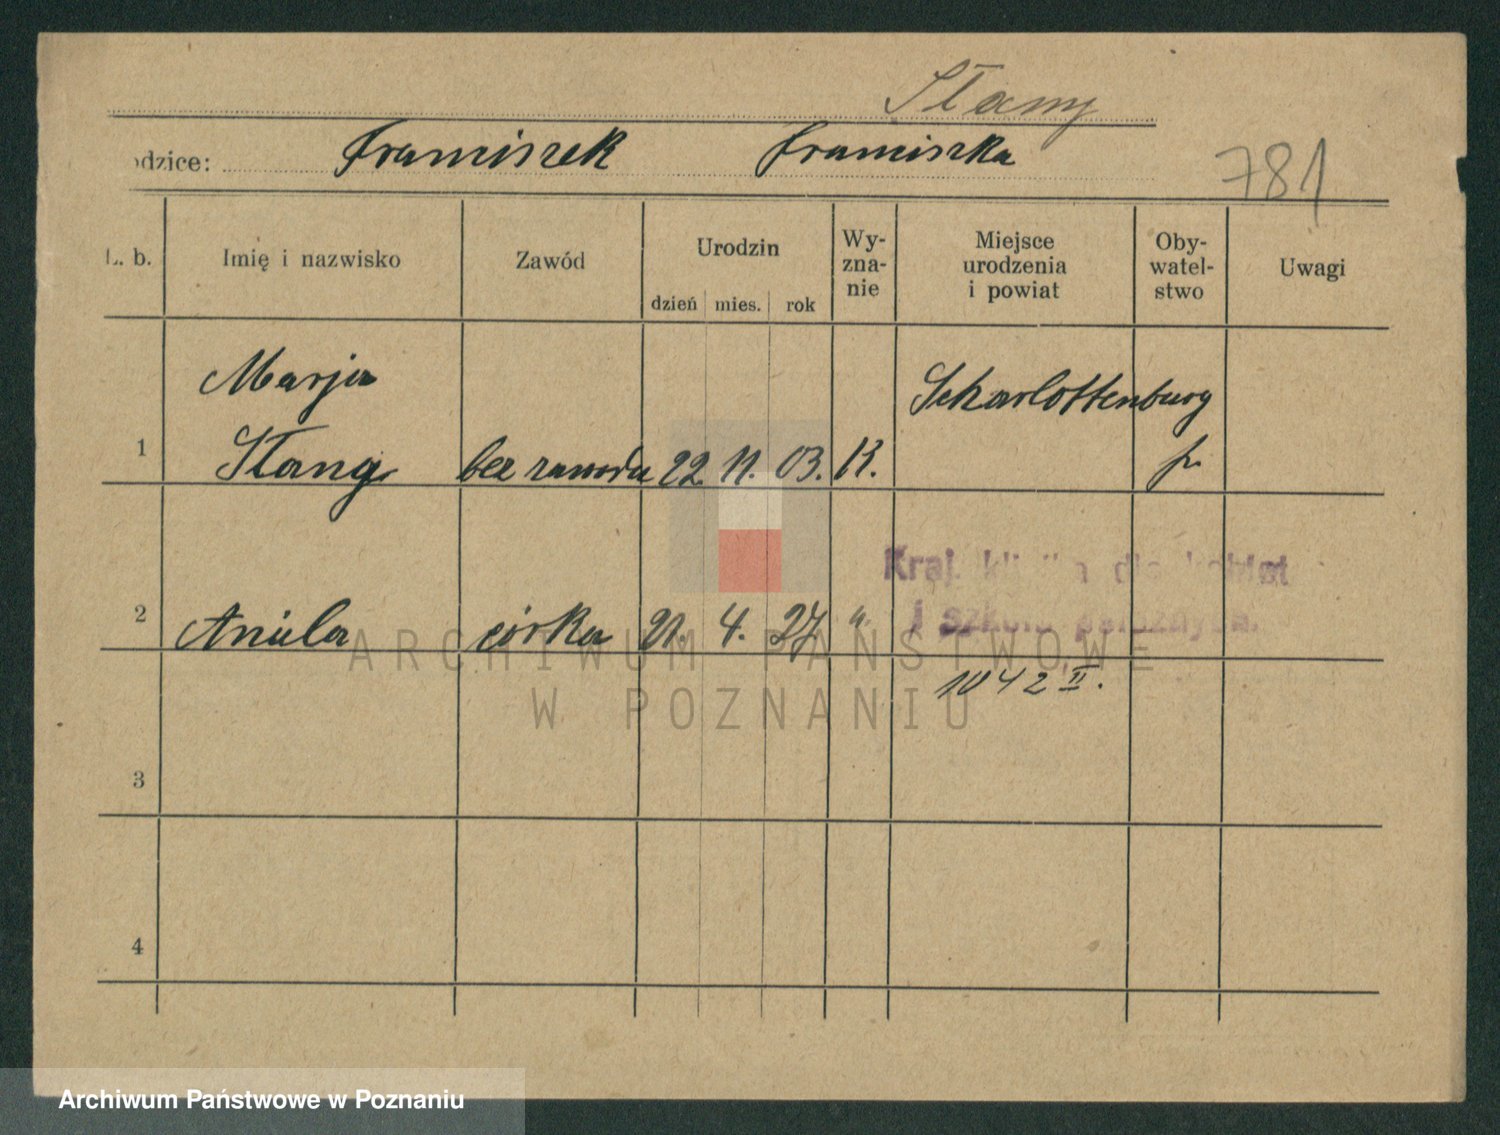 Stamy
odzice: Franciszek Franciszka
781
L. b. Imię i nazwisko Zawód Urodzin dzień mies. rok Wy-zna-nie Miejsce urodzenia i powiat Oby-watel-stwo Uwagi
Marja
1 Stang bez zawodu 22. 11. 03. K. Scharlottenburg
p.
Kraj. klinika dla kobiet
2 Aniela córka 21. 4. 27 ". i szkoła położnych.
1042 II.
3
4
ARCHIWUM PAŃSTWOWE
W POZNANIU
Archiwum Państwowe w Poznaniu